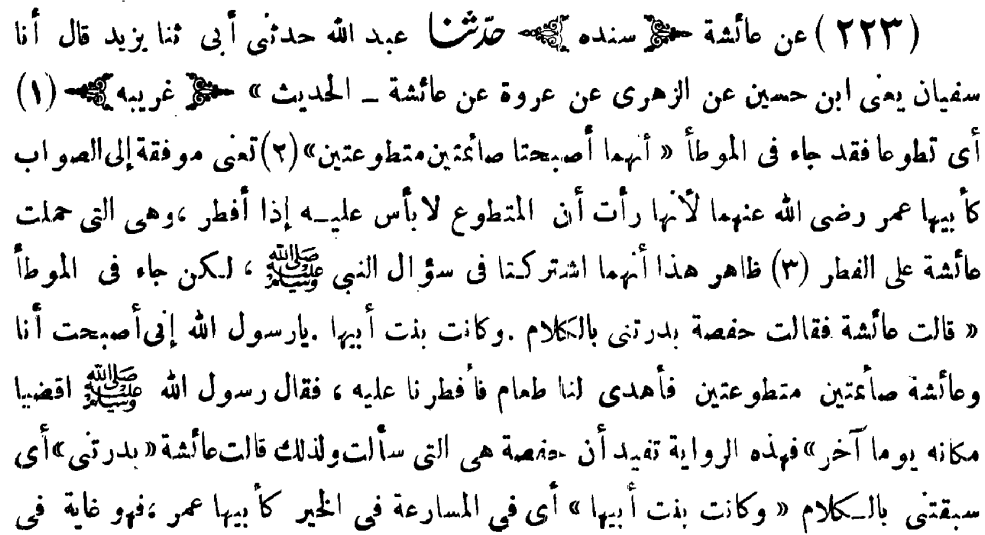 (٢٢٣) عن عائشة ﴿ سنده ﴾ حدّثنا عبد الله حدثنى أبى ثنا يزيد قال أنا
سفيان يعنى ابن حسين عن الزهرى عن عروة عن عائشة ـ الحديث » ﴿ غريبه ﴾ (١)
أى تطوعا فقد جاء فى الموطأ « أنهما أصبحتا صائمتين متطوعتين» (٢) تعنى موفقة إلى الصواب
كأبيها عمر رضى الله عنهما لأنها رأت أن المتطوع لابأس عليـه إذا أفطر ،وهى التى حملت
عائشة على الفطر (٣) ظاهر هذا أنهما اشتركـتا فى سؤال النبى ﷺ ، لـكن جاء فى الموطأ
« قالت عائشة فقالت حفصة بدرتنى بالكلام .وكانت بنت أبيها .يارسول الله إنى أصبحت أنا
وعائشة صائمتين متطوعتين فأهدى لنا طعام فأفطرنا عليه ، فقال رسول الله ﷺ اقضيا
مكانه يوما آخر» فهذه الرواية تفيد أن حفصة هى التى سألت ولذلك قالت عائشة « بدرتنى »أى
سبقتنى بالـكلام « وكانت بنت أبيها » أى فى المسارعة فى الخير كأبيها عمر ،فهو غاية فى